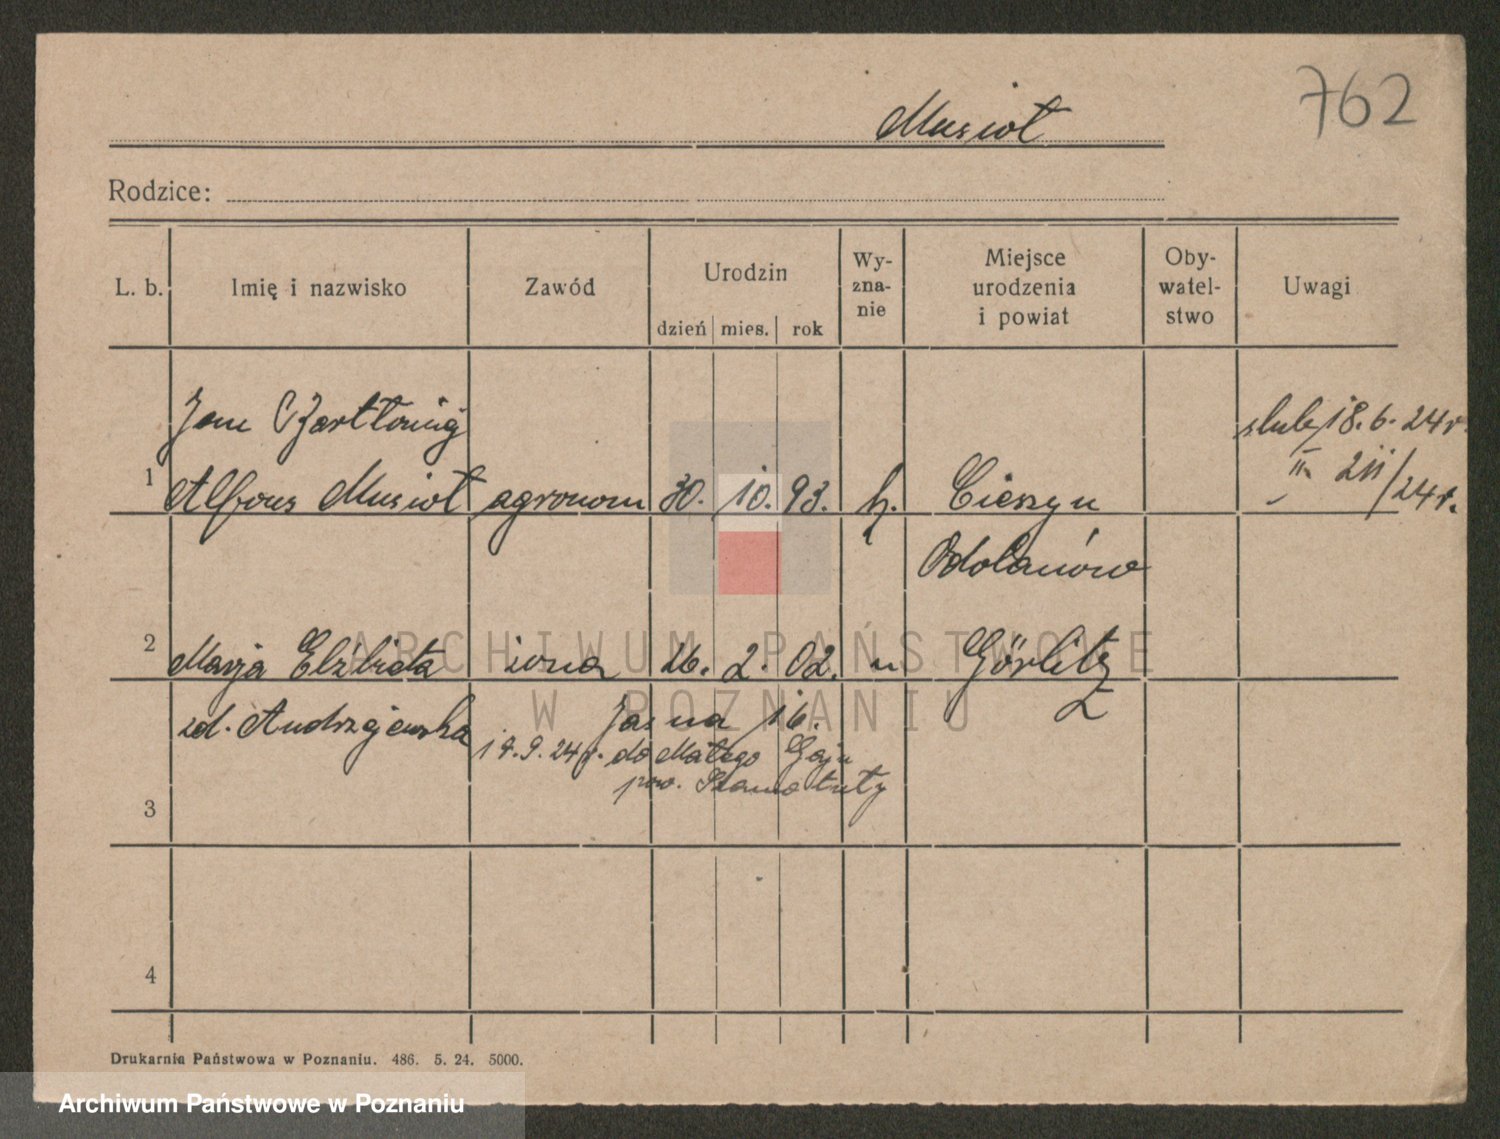 762
Musioł
Rodzice:
L. b. Imię i nazwisko Zawód Urodzin dzień mies. rok Wy-zna-nie Miejsce urodzenia i powiat Oby-watel-stwo Uwagi
Jan
ślub 18. 6. 24 r.
1 Alfons Musioł agronom 30. 10. 93. k. Cieszyn
24 r.
Odolanów
2 Marja Elżbieta żona 26. 2. 02. " Görlitz
zd. Andrzejewska Jasna 16.
9. 24 r. do Małego Gaju
pow. Szamotuły
3
4
Drukarnia Państwowa w Poznaniu. 486. 5. 24. 5000.
ARCHIWUM PAŃSTWOWE
W POZNANIU
Archiwum Państwowe w Poznaniu